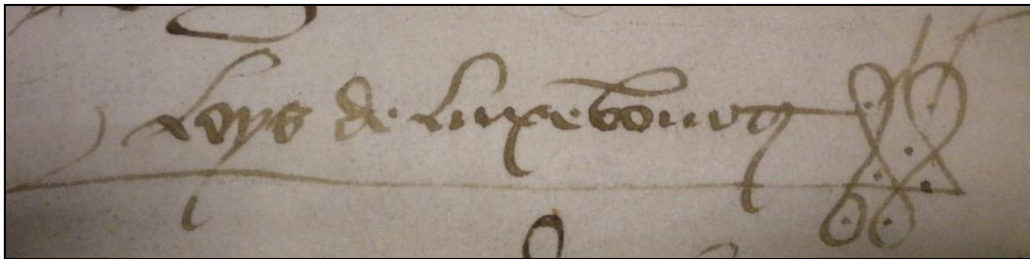 Loys de Luxebourg